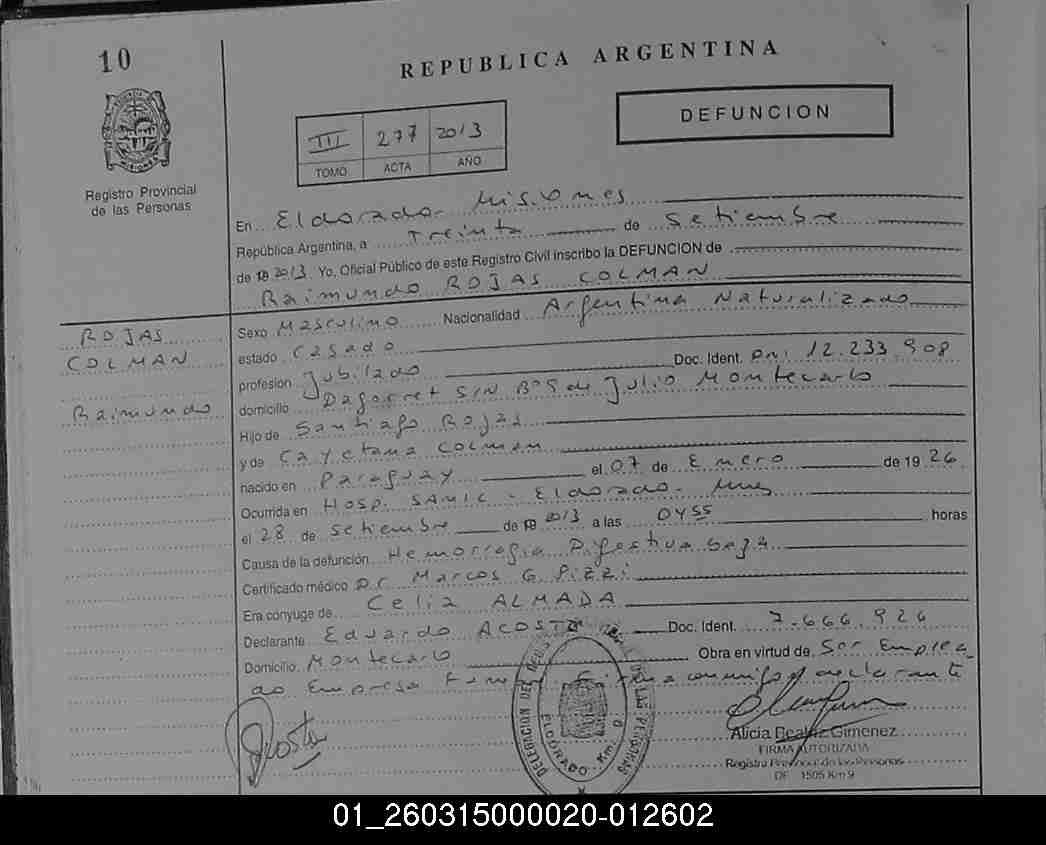 10
REPUBLICA ARGENTINA
DEFUNCION
III 277 2013
TOMO ACTA AÑO
Registro Provincial
de las Personas
En Eldorado - Misiones
República Argentina, a Treinta de Setiembre
de 19 2013 Yo, Oficial Público de este Registro Civil inscribo la DEFUNCION de
Raimundo ROJAS COLMAN
ROJAS
COLMAN
Raimundo
Sexo Masculino Nacionalidad Argentina Naturalizado
estado Casado
profesion Jubilado Doc. Ident. DNI 12.233.908
domicilio S/N Bº 9 de Julio Montecarlo
Hijo de Santiago Rojas
y de Cayetana COLMAN
nacido en Paraguay el 07 de Enero de 19 26
Ocurrida en Hosp. SAMIC - Eldorado - Mnes
el 28 de Setiembre de 19 2013 a las 0455 horas
Causa de la defunción Hemorragia Digestiva baja
Certificado médico Dr Marcos G. Pizzi
Era conyuge de Celia ALMADA
Declarante Eduardo ACOSTA Doc. Ident. 7.666.926
Domicilio Montecarlo Obra en virtud de Ser Emplea_
do Empresa Firma conmigo declarante
Acosta
DELEGACION DE LAS PERSONAS
ELDORADO Km. 9
Alicia Beatriz Gimenez
FIRMA AUTORIZADA
Registro Provincial de las Personas
DF 1505 Km 9
01_260315000020-012602